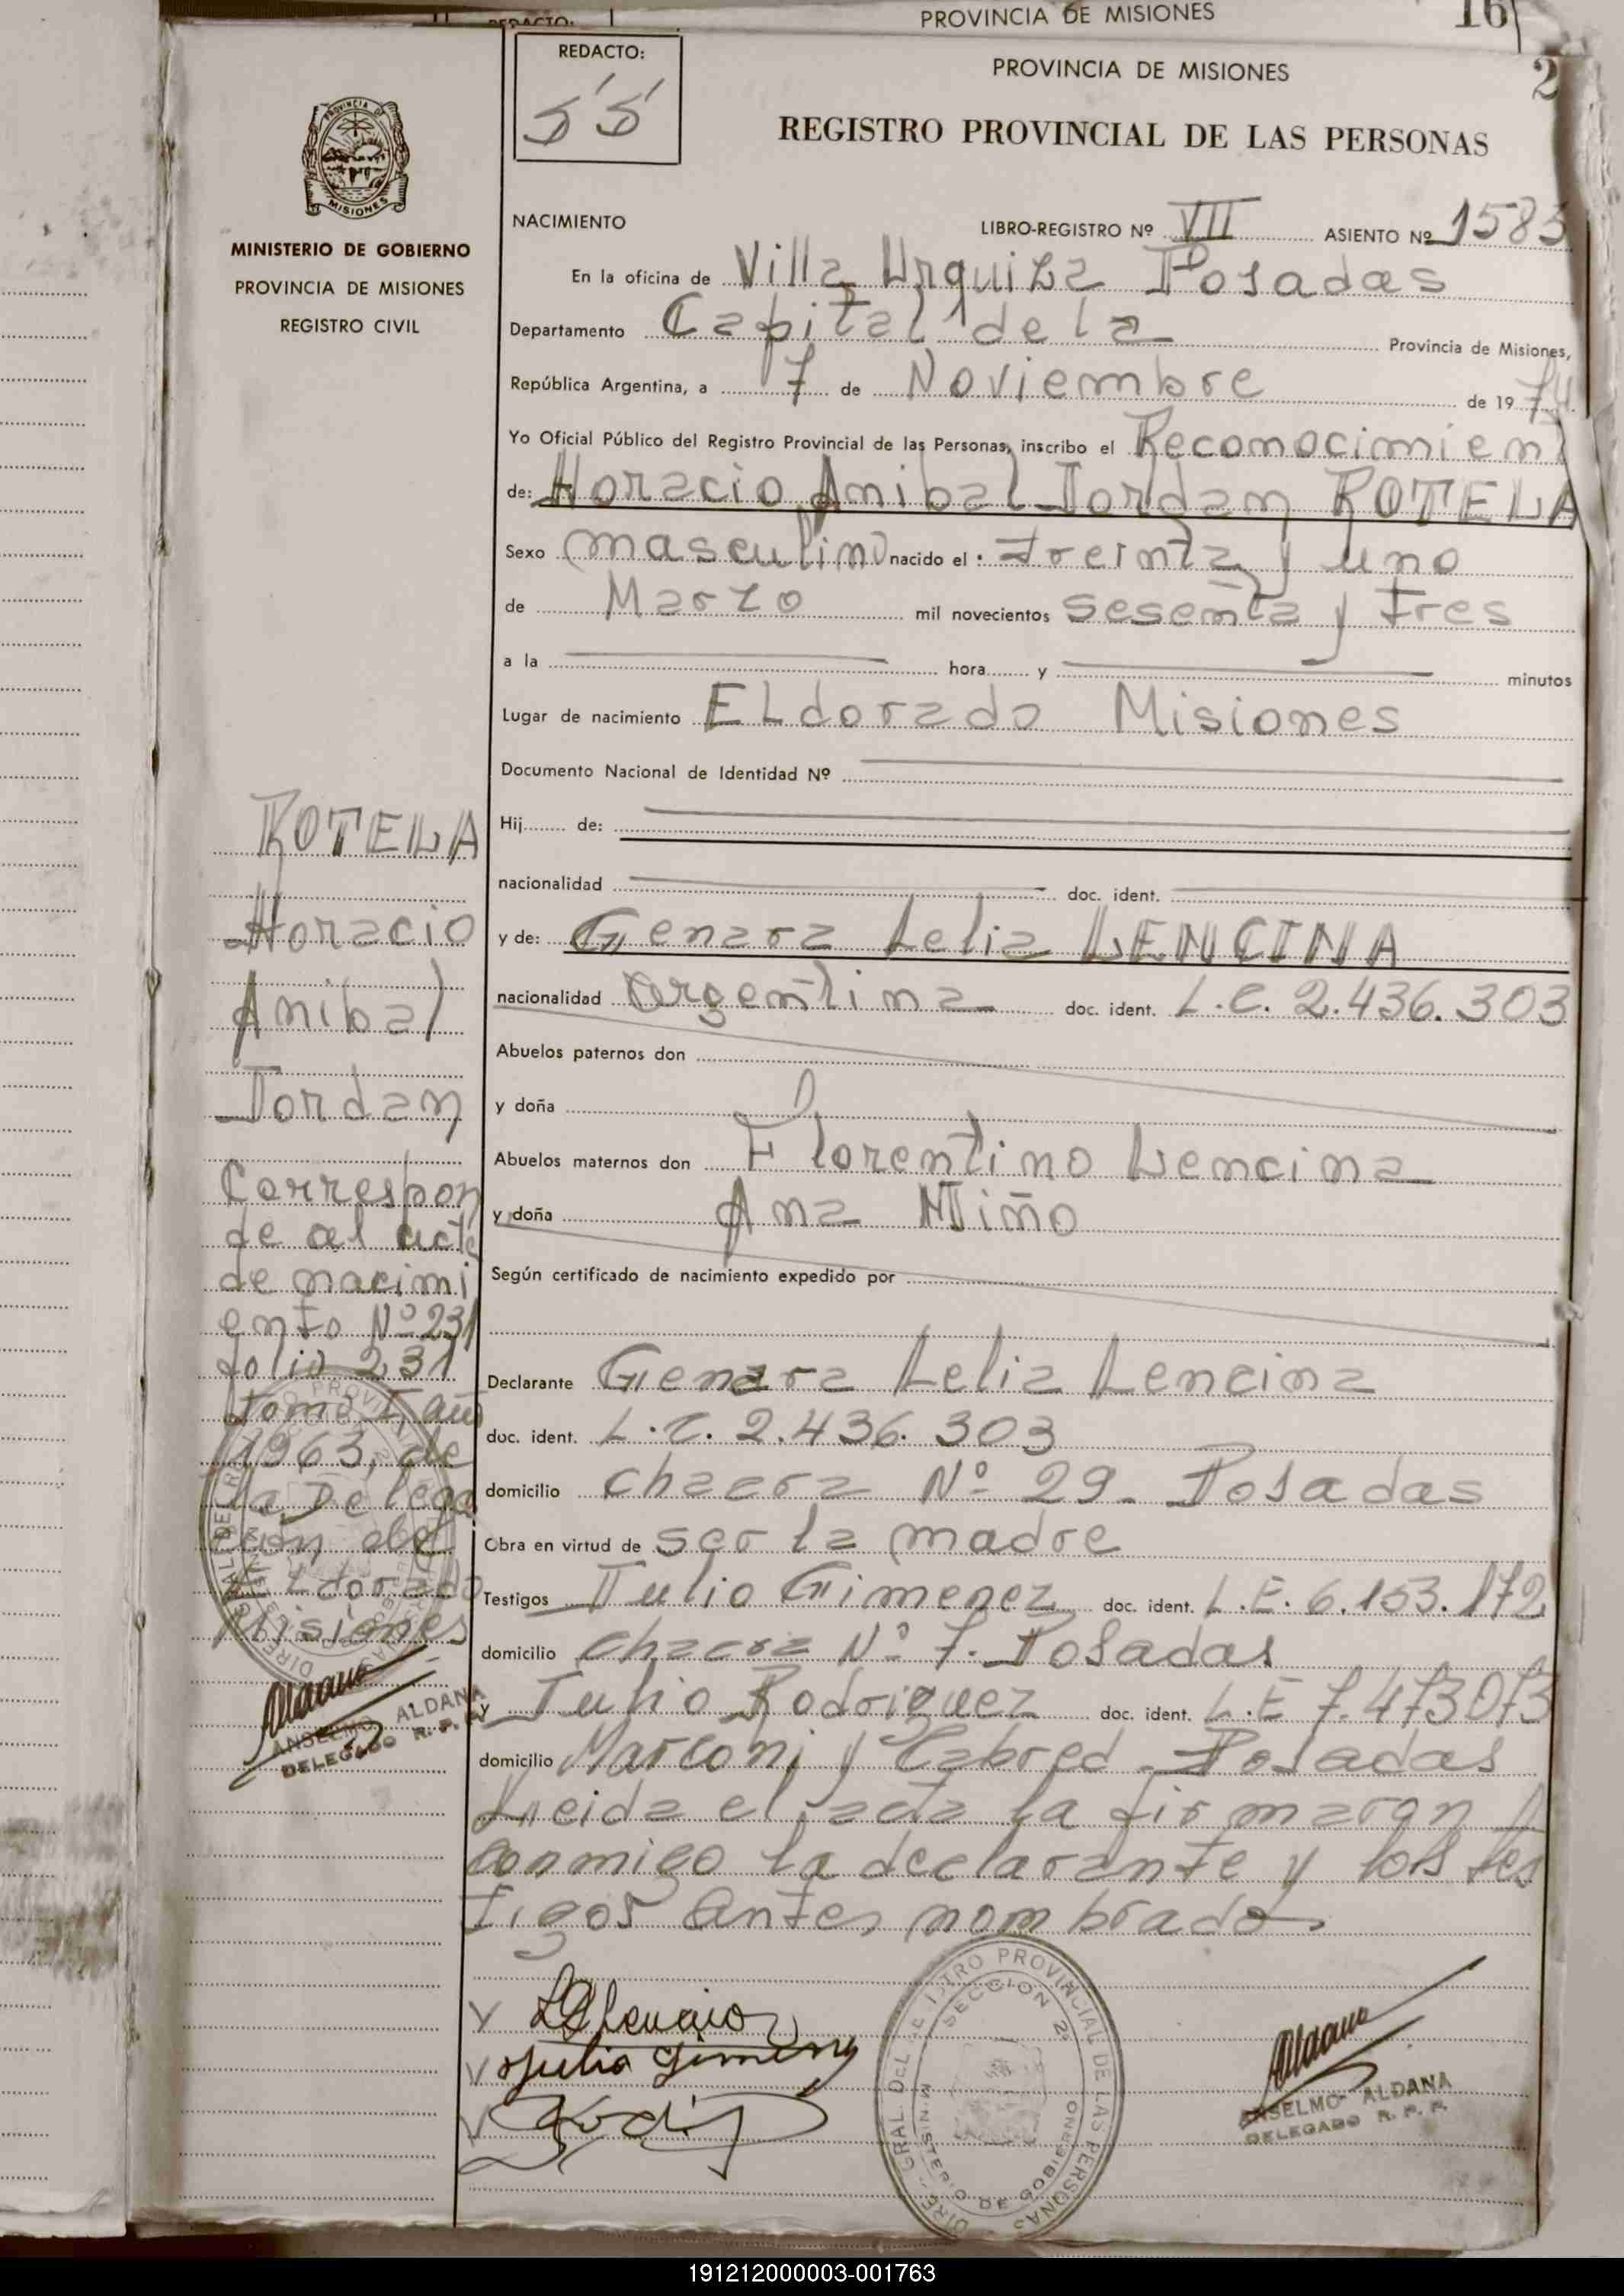 REDACTO:
PROVINCIA DE MISIONES
16
REDACTO:
55
PROVINCIA DE MISIONES
2
REGISTRO PROVINCIAL DE LAS PERSONAS
PROVINCIA DE
MISIONES
MINISTERIO DE GOBIERNO
PROVINCIA DE MISIONES
REGISTRO CIVIL
NACIMIENTO LIBRO-REGISTRO Nº VII ASIENTO Nº 1583
En la oficina de Villa Urquiza Posadas
Departamento Capital de la Provincia de Misiones,
República Argentina, a 7 de Noviembre de 1974
Yo Oficial Público del Registro Provincial de las Personas, inscribo el Reconocimien
de: Horacio Anibal Jordan ROTELA
Sexo masculino nacido el: Treinta y uno
de Marzo mil novecientos sesenta y Tres
a la hora y minutos
Lugar de nacimiento ELdorado Misiones
Documento Nacional de Identidad Nº
Hij de:
nacionalidad doc. ident.
y de: Genara Lelia LENCINA
nacionalidad Argentina doc. ident. L.C. 2.436.303
Abuelos paternos don
y doña
Abuelos maternos don Florentino Lencina
y doña Ana Miño
Según certificado de nacimiento expedido por
Declarante Genara Lelia Lencina
doc. ident. L.C. 2.436.303
domicilio chacra Nº 29- Posadas
Obra en virtud de ser la madre
Testigos Julio Gimenez doc. ident. L.E. 6.153.172
domicilio chacra Nº 7. Posadas
y Julio Rodriguez doc. ident. L.E 7.473073
domicilio Marconi y Cabred - Posadas
Leida el acta la firmaron
conmigo la declarante y los tes
tigos antes nombrados
ROTELA
Horacio
Anibal
Jordan
Correspon
de al acta
de nacimi
ento Nº 231
folio 231
Tomo I, año
1963, de
la Delega
ción de
ELdorado
Misiones
ANSELMO ALDANA
DELEGADO R. P. P.
Julio Gimenez
DIRE. GRAL. DEL REGISTRO PROVINCIAL DE LAS PERSONAS
SECCION 2º
MINISTERIO DE GOBIERNO
ANSELMO ALDANA
DELEGADO R. P. P.
191212000003-001763